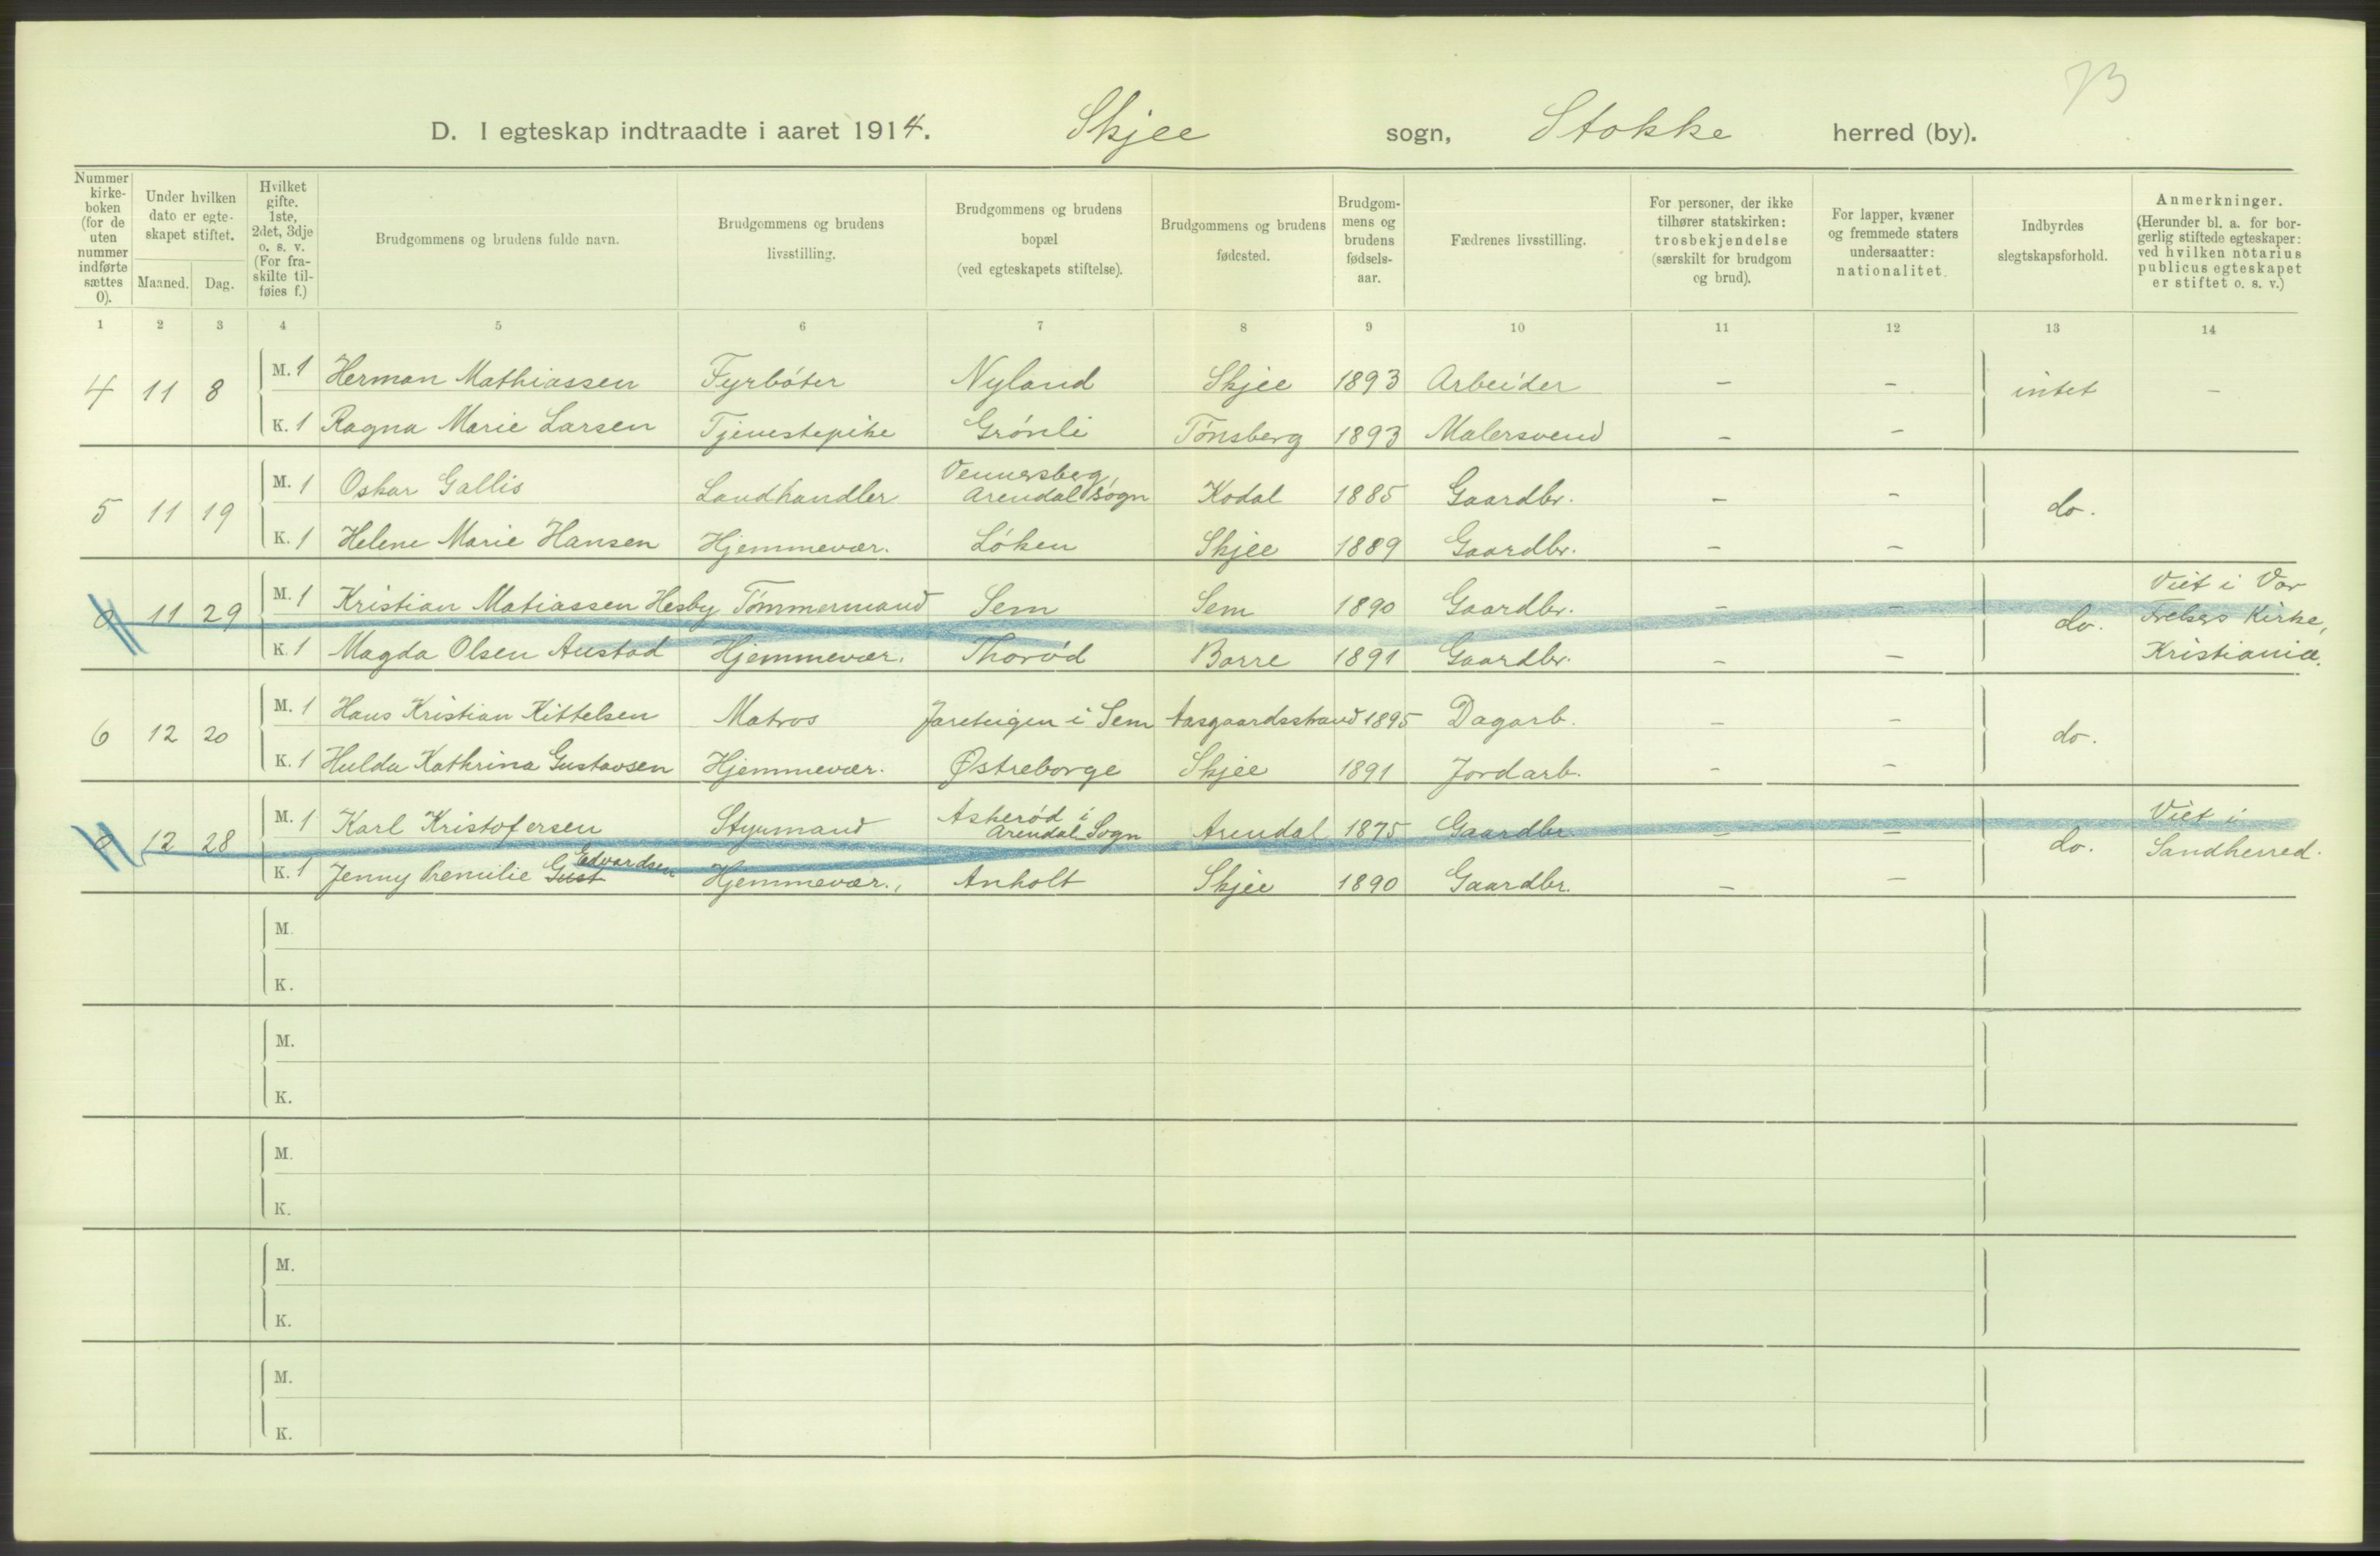 73
D. I egteskap indtraadte i aaret 1914. Skjee sogn, Stokke herred (by).
Nummer kirke-boken (for de uten nummer indførte sættes 0).
Under hvilken dato er egte-skapet stiftet.
Maaned. Dag.
Hvilket gifte, 1ste, 2det, 3dje o. s. v. (For fra-skilte til-føies f.)
Brudgommens og brudens fulde navn.
Brudgommens og brudens livsstilling.
Brudgommens og brudens bopæl (ved egteskapets stiftelse).
Brudgommens og brudens fødested.
Brudgom-mens og brudens fødsels-aar.
Fædrenes livsstilling.
For personer, der ikke tilhører statskirken: trosbekjendelse (særskilt for brudgom og brud).
For lapper, kvæner og fremmede staters undersaatter: nationalitet.
Indbyrdes slegtskapsforhold.
Anmerkninger. (Herunder bl. a. for bor-gerlig stiftede egteskaper: ved hvilken notarius publicus egteskapet er stiftet o. s. v.)
1 2 3 4 5 6 7 8 9 10 11 12 13 14
4 11 8 M. 1 Herman Mathiassen Fyrbøter Nyland Skjee 1893 Arbeider – – intet –
K. 1 Ragna Marie Larsen Tjenestepike Grønli Tønsberg 1893 Malersvend – –
5 11 19 M. 1 Oskar Gallis Landhandler Vennersberg, Arendal sogn Kodal 1885 Gaardbr. – – do.
K. 1 Helene Marie Hansen Hjemmevær. Løken Skjee 1889 Gaardbr. – –
0 11 29 M. 1 Kristian Matiassen Hesby Tømmermand Sem Sem 1890 Gaardbr. – – do. Viet i Vor Frelsers Kirke, Kristiania.
K. 1 Magda Olsen Austad Hjemmevær. Thorød Borre 1891 Gaardbr. – –
6 12 20 M. 1 Hans Kristian Kittelsen Matros Jareteigen i Sem Aasgaardsstrand 1895 Dagarb. – – do.
K. 1 Hulda Kathrina Gustavsen Hjemmevær. Østreborge Skjee 1891 Jordarb. – –
0 12 28 M. 1 Karl Kristofersen Styrmand Askerød i Arendal Sogn Arendal 1875 Gaardbr – – do. Viet i Sandherred.
K. 1 Jenny Gust Edvardsen Hjemmevær. Anholt Skjee 1890 Gaardbr. – –
M.
K.
M.
K.
M.
K.
M.
K.
M.
K.